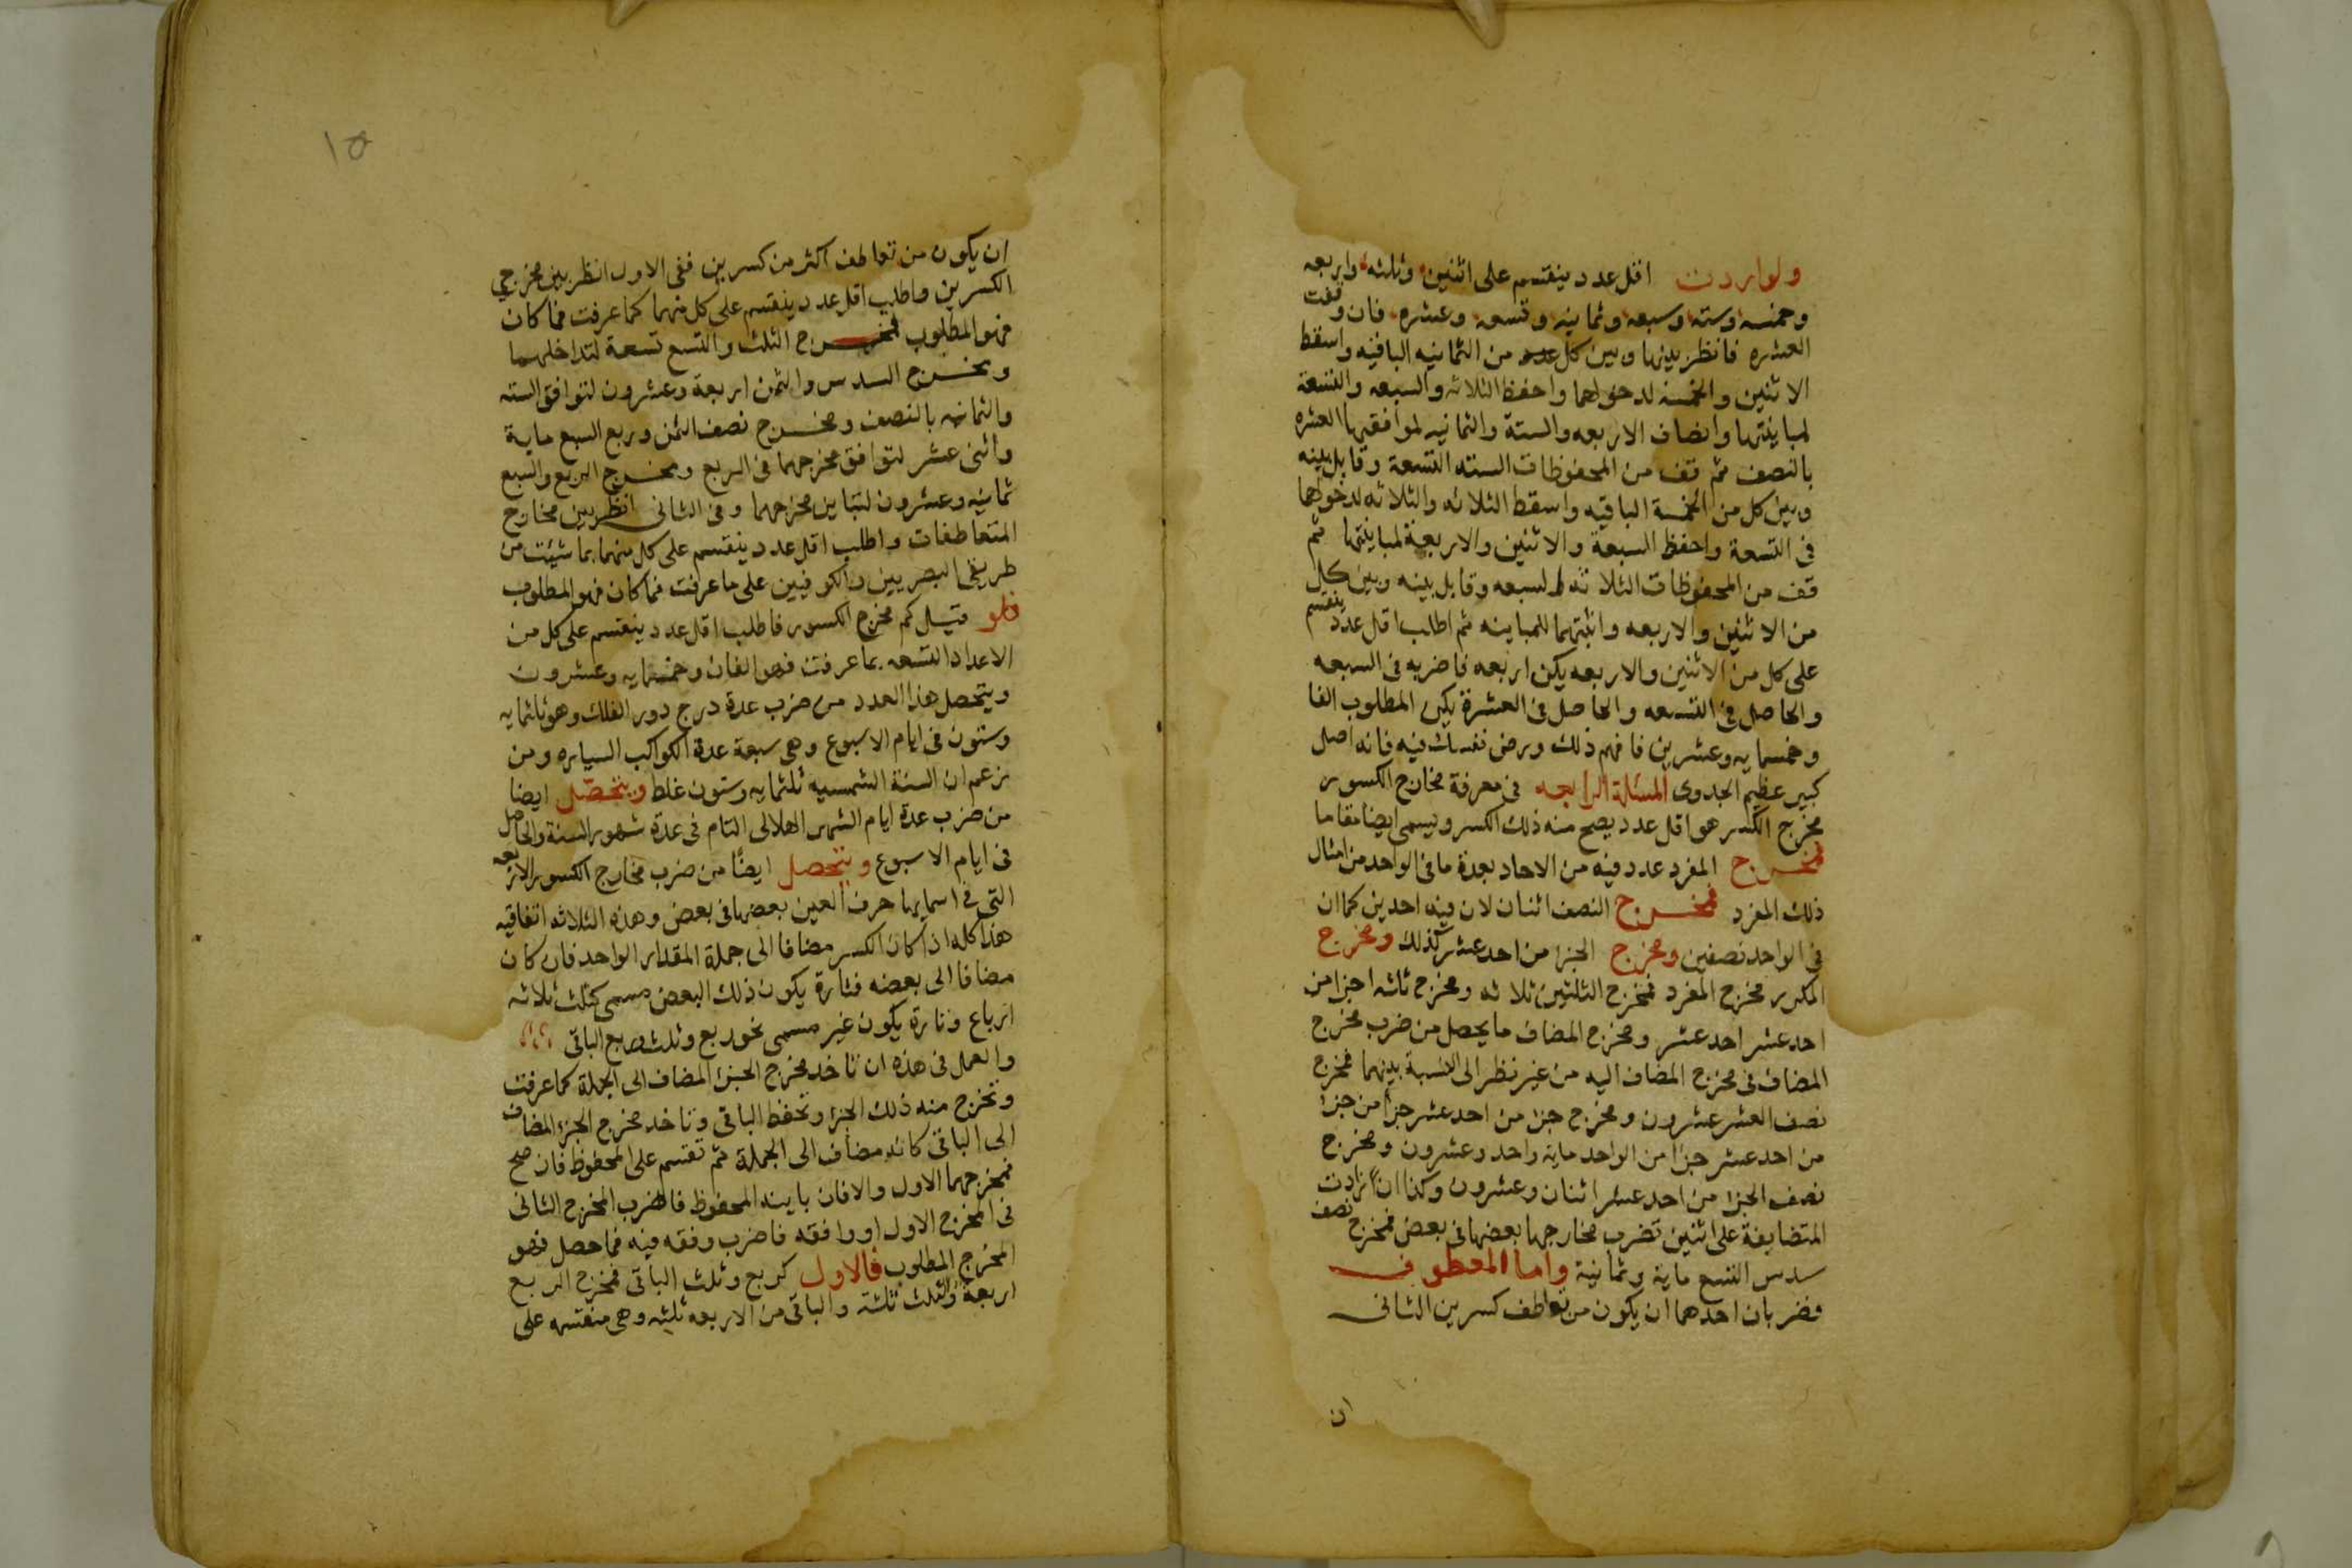 ولو اردت اقل عدد ينقسم على اثنين وثلثه واربعه
وخمسه وسته وسبعه وثمانيه وتسعه وعشره فان وقفت
العشره فانظر بينها وبين كل عدد من الثمانيه الباقيه واسقط
الاثنين والخمسه لدخولهما واحفظ الثلاثه والسبعه والتسعة
لمباينتها وانصاف الاربعه والستة والثمانيه لموافقتها العشره
بالنصف ثم قف من المحفوظات الستة التسعة وقابل بينه
وبين كل من الخمسة الباقيه واسقط الثلاثه والثلاثه لدخولهما
فى التسعة واحفظ السبعة والاثنين والاربعة لمباينتها ثم
قف من المحفوظات الثلاثه السبعه وقابل بينه وبين كل
من الاثنين والاربعه واثبتهما للمباينه ثم اطلب اقل عدد ينقسم
على كل من الاثنين والاربعه يكن اربعه فاضربه فى السبعه
والحاصل فى التسعه والحاصل فى العشرة يكن المطلوب الفا
وخمسمايه وعشرين فافهم ذلك ورض نفسك فيه فانه اصل
كبير عظيم الجدوى المسئلة الرابعه فى معرفة مخارج الكسور
مخرج الكسر هو اقل عدد يصح منه ذلك الكسر ويسمى ايضا مقاما
فمخرج المفرد عدد فيه من الاحاد بعدة ما فى الواحد من امثال
ذلك المفرد فمخرج النصف اثنان لان فيه احدين كما ان
فى الواحد نصفين ومخرج الجزا من احد عشر كذلك ومخرج
المكرر مخرج المفرد فمخرج الثلثين ثلاثه ومخرج ثلثه اجزا من
احد عشر احد عشر ومخرج المضاف ما يحصل من ضرب مخرج
المضاف فى مخرج المضاف اليه من غير نظر الى النسبة بينهما فمخرج
نصف العشر عشرون ومخرج جزا من احد عشر جزأ من جزأ
من احد عشر جزا من الواحد ماية واحد وعشرون ومخرج
نصف الجزا من احد عشر اثنان وعشرون وكذا ان زادت
المتضايفة على اثنين تضرب مخارجها بعضها فى بعض فمخرج نصف
سدس التسع ماية وثمانية واما المعطوف
فضربان احدهما ان يكون من تعاطف كسرين الثانى
ان
١٥
ان يكون من تعاطف اكثر من كسرين ففى الاول انظر بين مخرجي
الكسرين واطلب اقل عدد ينقسم على كل منهما كما عرفت فما كان
فهو المطلوب فمخرج الثلث والتسع تسعة لتداخلهما
ومخرج السدس والثمن اربعة وعشرون لتوافق الستة
والثمانيه بالنصف ومخرج نصف الثمن وربع السبع ماية
واثنى عشر لتوافق مخرجهما فى الربع ومخرج الربع والسبع
ثمانيه وعشرون لتباين مخرجهما وفى الثانى انظر بين مخارج
المتعاطفات واطلب اقل عدد ينقسم على كل منهما بما شئت من
طريقى البصريين والكوفيين على ما عرفت فما كان فهو المطلوب
فلو قيل كم مخرج الكسور فاطلب اقل عدد ينقسم على كل من
الاعداد التسعه بما عرفت فهو الفان وخمسمايه وعشرون
ويتحصل هذا العدد من ضرب عدة درج دور الفلك وهو ثلثمايه
وستون فى ايام الاسبوع وهى سبعة عدة الكواكب السياره ومن
زعم ان السنة الشمسيه ثلثمايه وستون غلط ويتحصل ايضا
من ضرب عدة ايام الشهر الهلالى التام فى عدة شهور السنة والحاصل
فى ايام الاسبوع ويتحصل ايضًا من ضرب مخارج الكسور الاربعه
التى فى اسمايها حرف العين بعضها فى بعض وهذه الثلاثه اتفاقيه
هذا كله اذا كان الكسر مضافا الى جملة المقدار الواحد فان كان
مضافا الى بعضه فتارة يكون ذلك البعض مسمى كثلث ثلاثه
ارباع وتارة يكون غير مسمى نحو ربع وثلث وربع الباقى
والعمل فى هذه ان تاخد مخرج الجزء المضاف الى الجملة كما عرفت
وتخرج منه ذلك الجزا وتحفظ الباقى وتاخد مخرج الجزا المضاف
الى الباقى كانه مضاف الى الجملة ثم تقسم على المحفوظ فان صح
فمخرجهما الاول والا فان باينه المحفوظ فاضرب المخرج الثانى
فى المخرج الاول او وافقه فاضرب وفقه فيه فما حصل فهو
المخرج المطلوب فالاول كربع وثلث الباقى فمخرج الربع
اربعة والثلث ثلثه والباقى من الاربعه ثلثه وهى منقسمه على